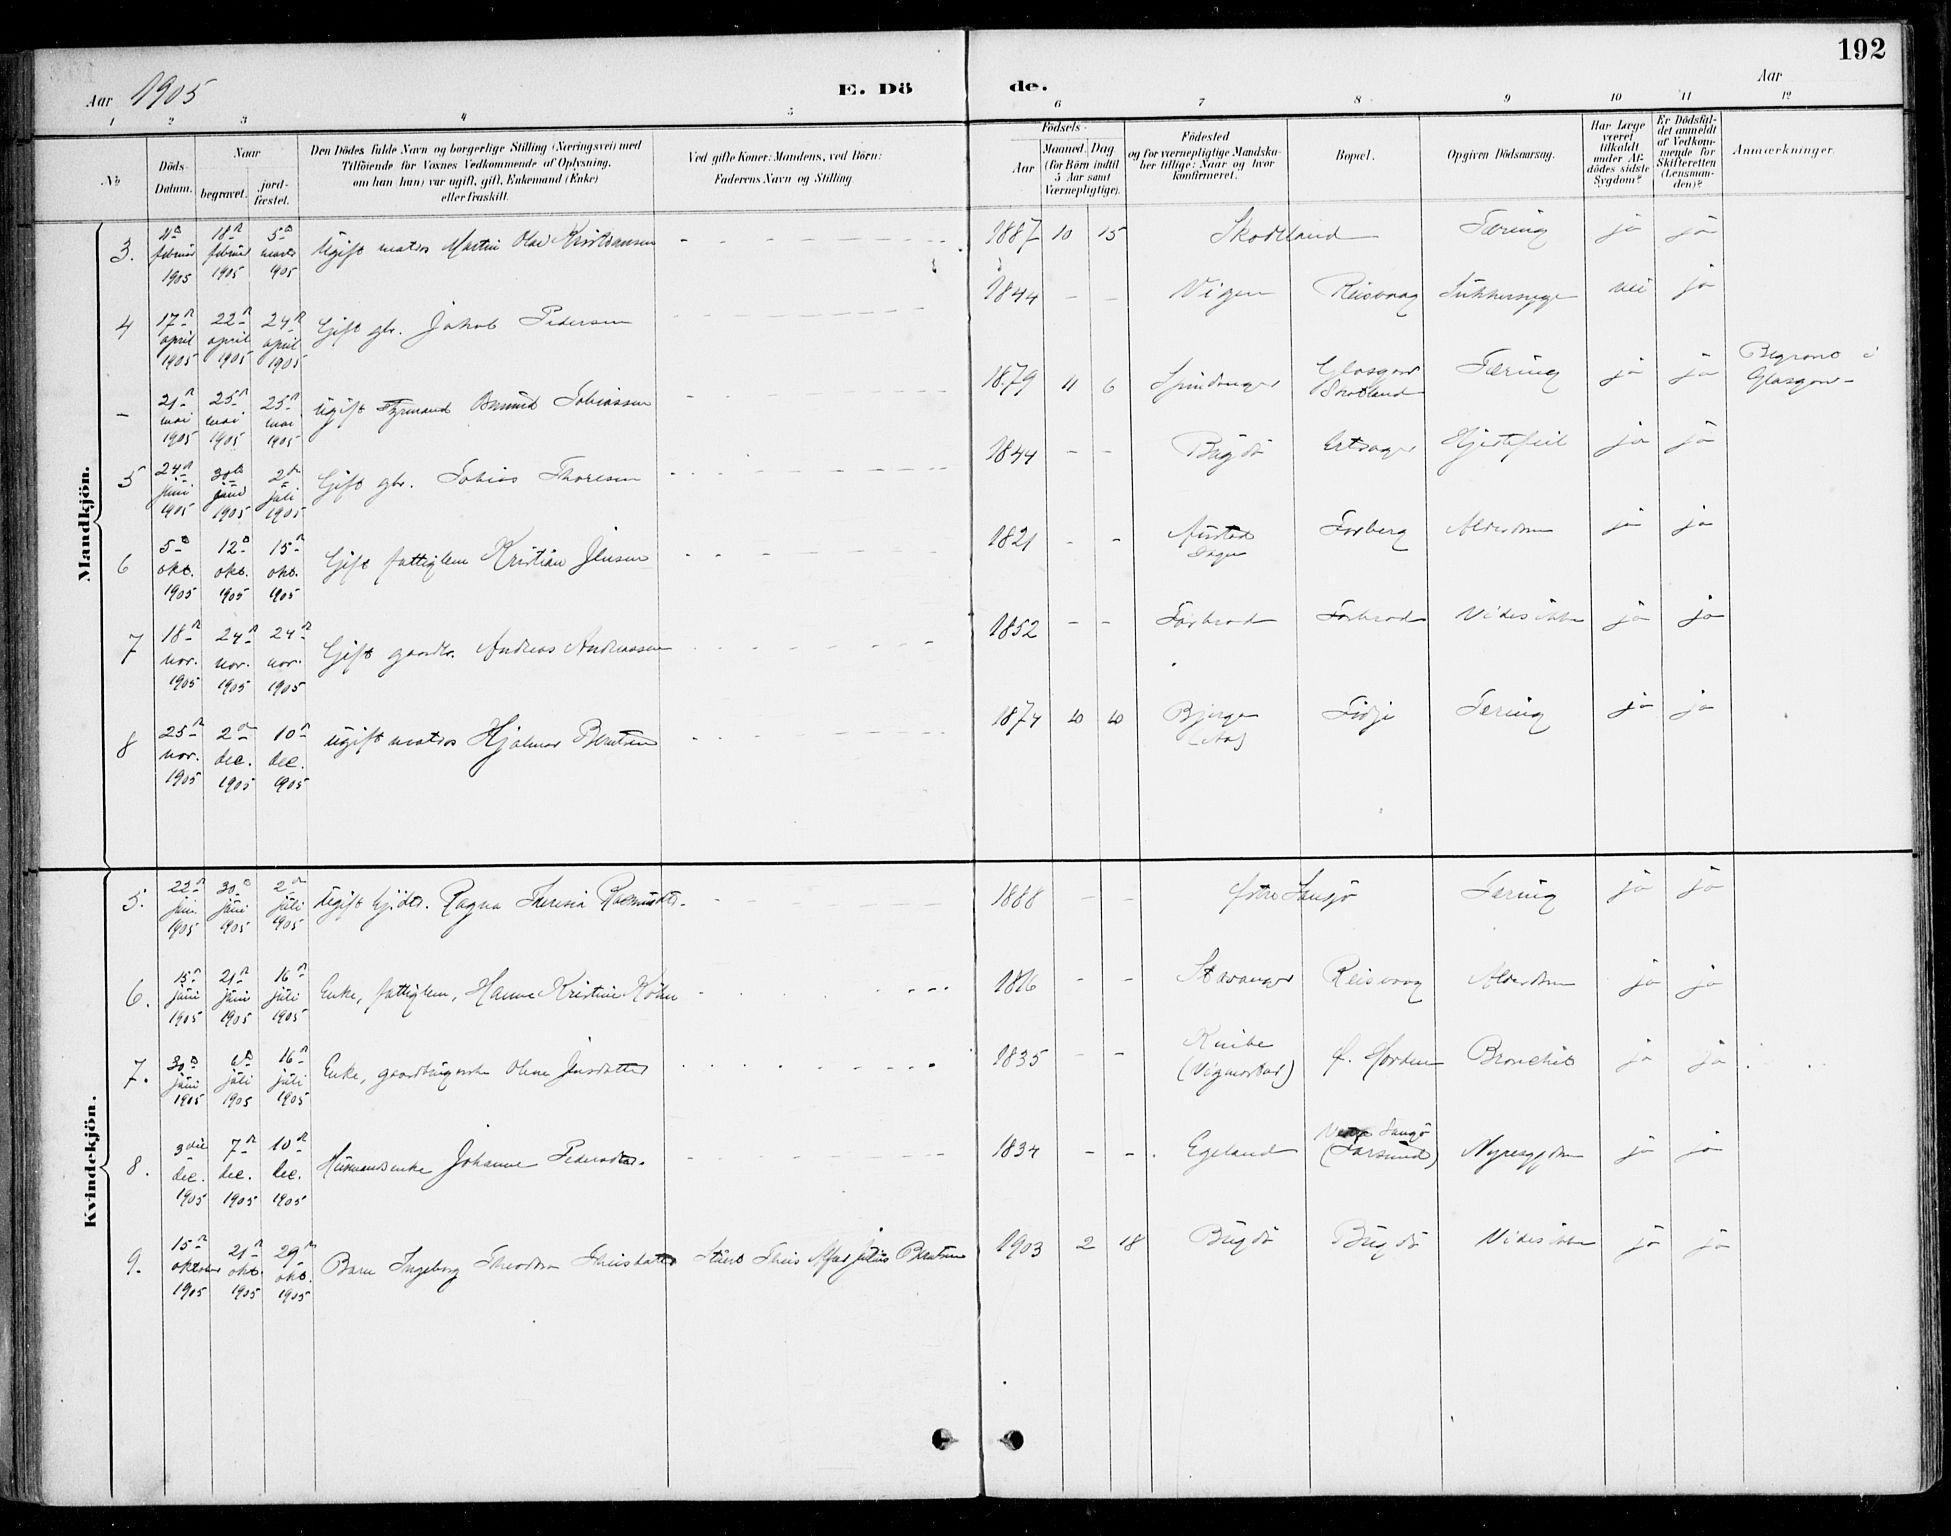 192
Aar 1905
E. Dö de.
Aar
1 2 3 4 5 6 7 8 9 10 11 12
No
Döds-Datum.
Naar
begravet.
jord-fæstet.
Den Dödes fulde Navn og borgerlige Stilling (Næringsvei) med
Tilföiende for Voxnes Vedkommende af Oplysning,
om han (hun) var ugift, gift, Enkemand (Enke)
eller fraskilt.
Ved gifte Koner: Mandens, ved Börn:
Faderens Navn og Stilling
Födsels-
Aar
Maaned. Dag.
(for Börn indtil
5 Aar samt
Værnepligtige).
Födested
og for værnepligtige Mandska-
ber tillige: Naar og hvor
konfirmeret.
Bopæl.
Opgiven Dödsaarsag.
Har Læge
været
tilkaldt
under Af-
dödes sidste
Sygdom?
Er Dödsfal-
det anmeldt
af Vedkom-
mende for
Skifteretten
(Lensman-
den)?
Anmærkninger.
Mandkjön.
3. 11te februar 1905 18de februar 1905 5te marts 1905 Ugift matros Martin Olai Kristiansen 1887 10 15 Skodtland Tæring ja ja
4 17de april 1905 22de april 1905 24de april 1905 Gift gbr. Jakob Pedersen 1844 - - Vigen Reisvaag Sukkersyge nei ja
- 21de mai 1905 25de mai 1905 25de mai 1905 Ugift Fyrmand Osmund Tobiassen 1879 11 6 Spindanger Glasgow Scotland Tæring ja ja Begravet i Glasgow-
5 24de juni 1905 30te juni 1905 2den juli 1905 Gift gbr. Tobias Thoresen 1844 - - Bugdö Ertsager Hjertefeil ja ja
6 5te okt. 1905 12te okt. 1905 15de okt. 1905 Gift fattiglem Kristian Jensen 1821 - - Austad Sogn Forberg Alderdom ja ja
7 18de nov. 1905 24de nov. 1905 24de nov. 1905 Gift gaardbr. Andreas Andreassen 1852 - - Forbrod Forbrod Vides ikke ja ja
8 25de nov. 1905 2den dec. 1905 10de dec. 1905 Ugift matros Hjalmar Berntsen 1874 10 10 Bjerge Fidje Tæring ja ja
Kvindekjön.
5. 22de juni 1905 30te juni 1905 2den juli 1905 Ugift Gjdtr. Ragna Theresia Rasmusdtr. 1888 - - Tæring ja ja
6. 15de juni 1905 21de juni 1905 16de juli 1905 Enke, fattiglem, Hanne Kristine Köhn 1816 - - Stavanger Reisvaag Alderdom ja ja
7. 30te juni 1905 6te juli 1905 16de juli 1905 Enke, Olene Jensdatter 1835 - - Knibe (Vigmostad) Bronchit ja ja
8. 3die dec. 1905 7de dec. 1905 10de dec. 1905 Husmandsenke Johanne Pedersdtr. 1834 - - Egeland (Farsund) Nyresygdom ja ja
9. 15de oktober 1905 21de okt. 1905 29de okt. 1905 Barn Ingeborg Theodora Theisdatter Theis Julius Berntsen 1903 2 18 Bugdö Bugdö Vides ikke ja ja